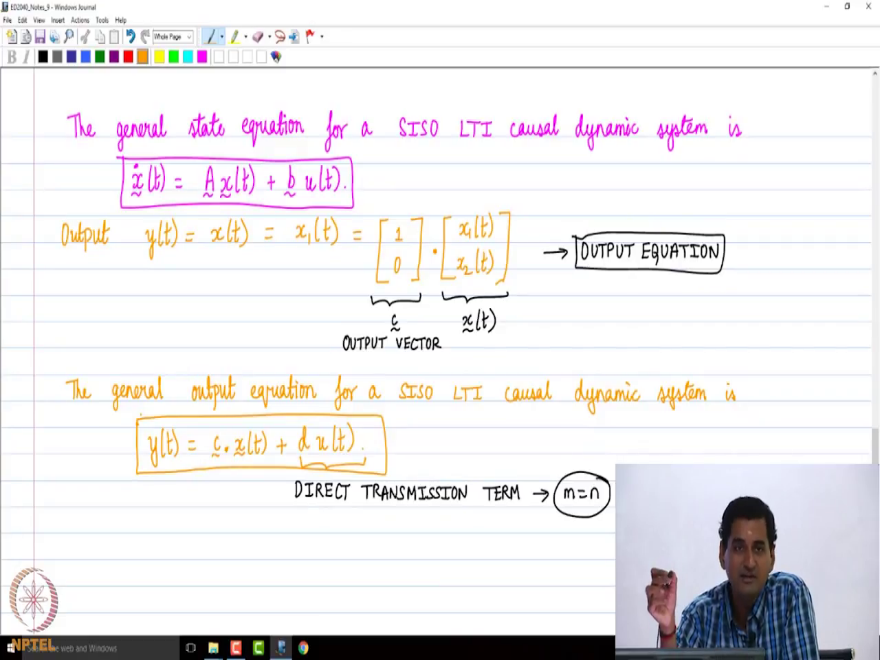 ED2040_Notes_9 - Windows Journal
File Edit View Insert Actions Tools Help
Whole Page
B I
The general state equation for a SISO LTI causal dynamic system is
ẋ(t) = A x(t) + b u(t).
Output y(t) = x(t) = x₁(t) = [1 0] · [x₁(t) x₂(t)] → OUTPUT EQUATION
c x(t)
OUTPUT VECTOR
The general output equation for a SISO LTI causal dynamic system is
y(t) = c · x(t) + d u(t).
DIRECT TRANSMISSION TERM → m=n
NPTEL
the web and Windows